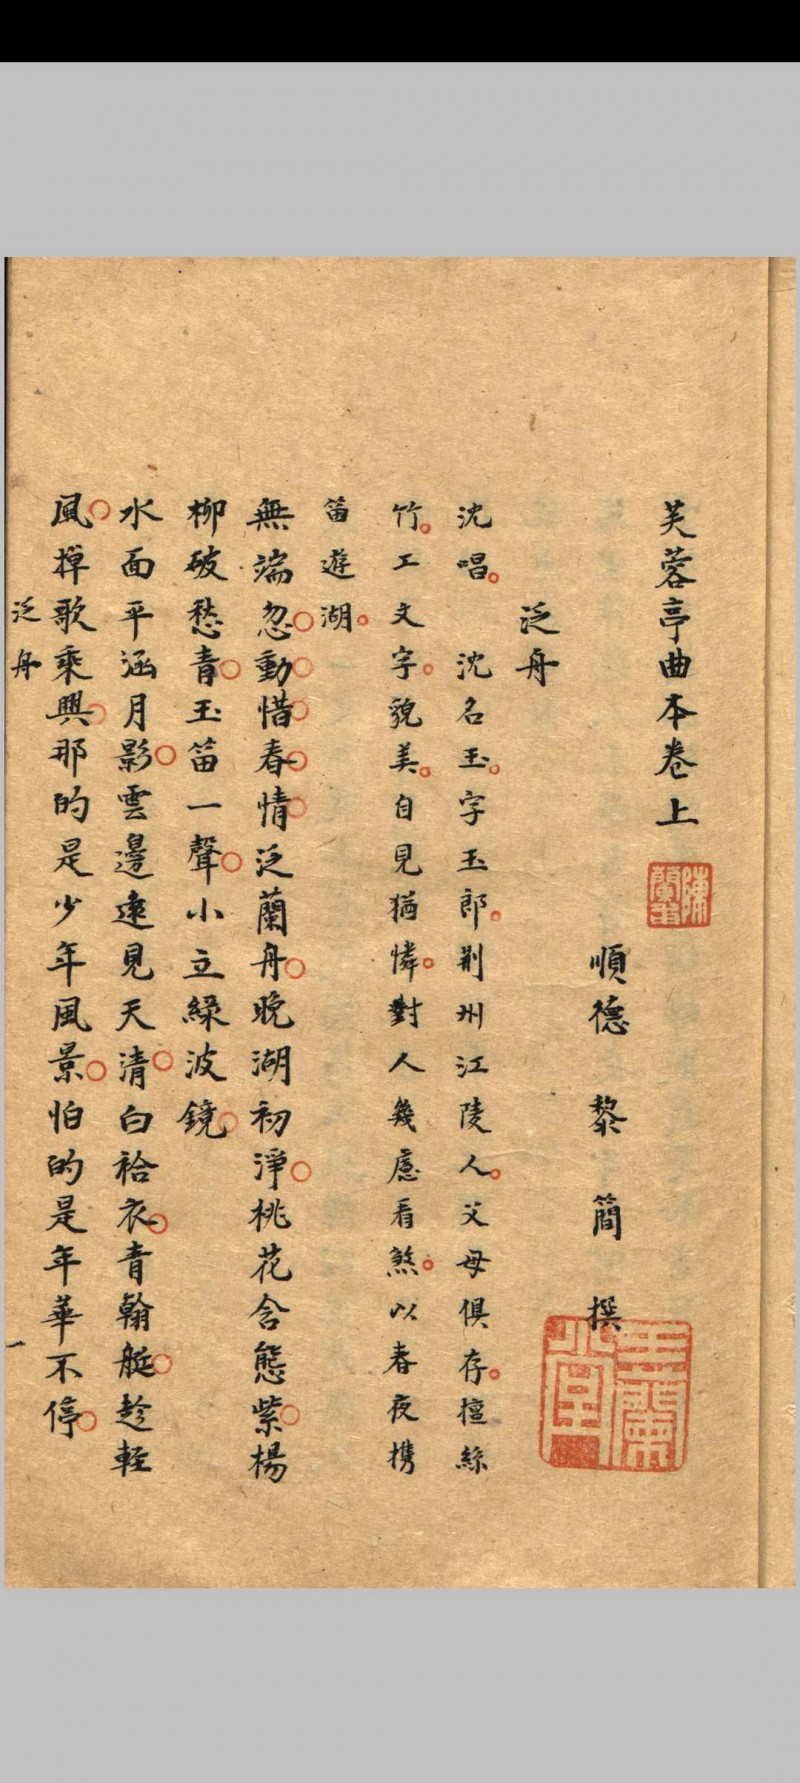 芙蓉亭曲本卷上
陳蘭甫
順德 黎 簡 撰
泛舟
沈唱 沈名玉字玉郎荆州江陵人父母俱存擅絲
竹工文字貌美自見猶憐對人幾慮看煞以春夜携
笛遊湖
無端忽動惜春情泛蘭舟晚湖初淨桃花含態紫楊
柳破愁青玉笛一聲小立綠波鏡
水面平涵月影雲邊遠見天清白袷衣青翰艇趁輕
風掉歌乘興那的是少年風景怕的是年華不停
泛舟 一